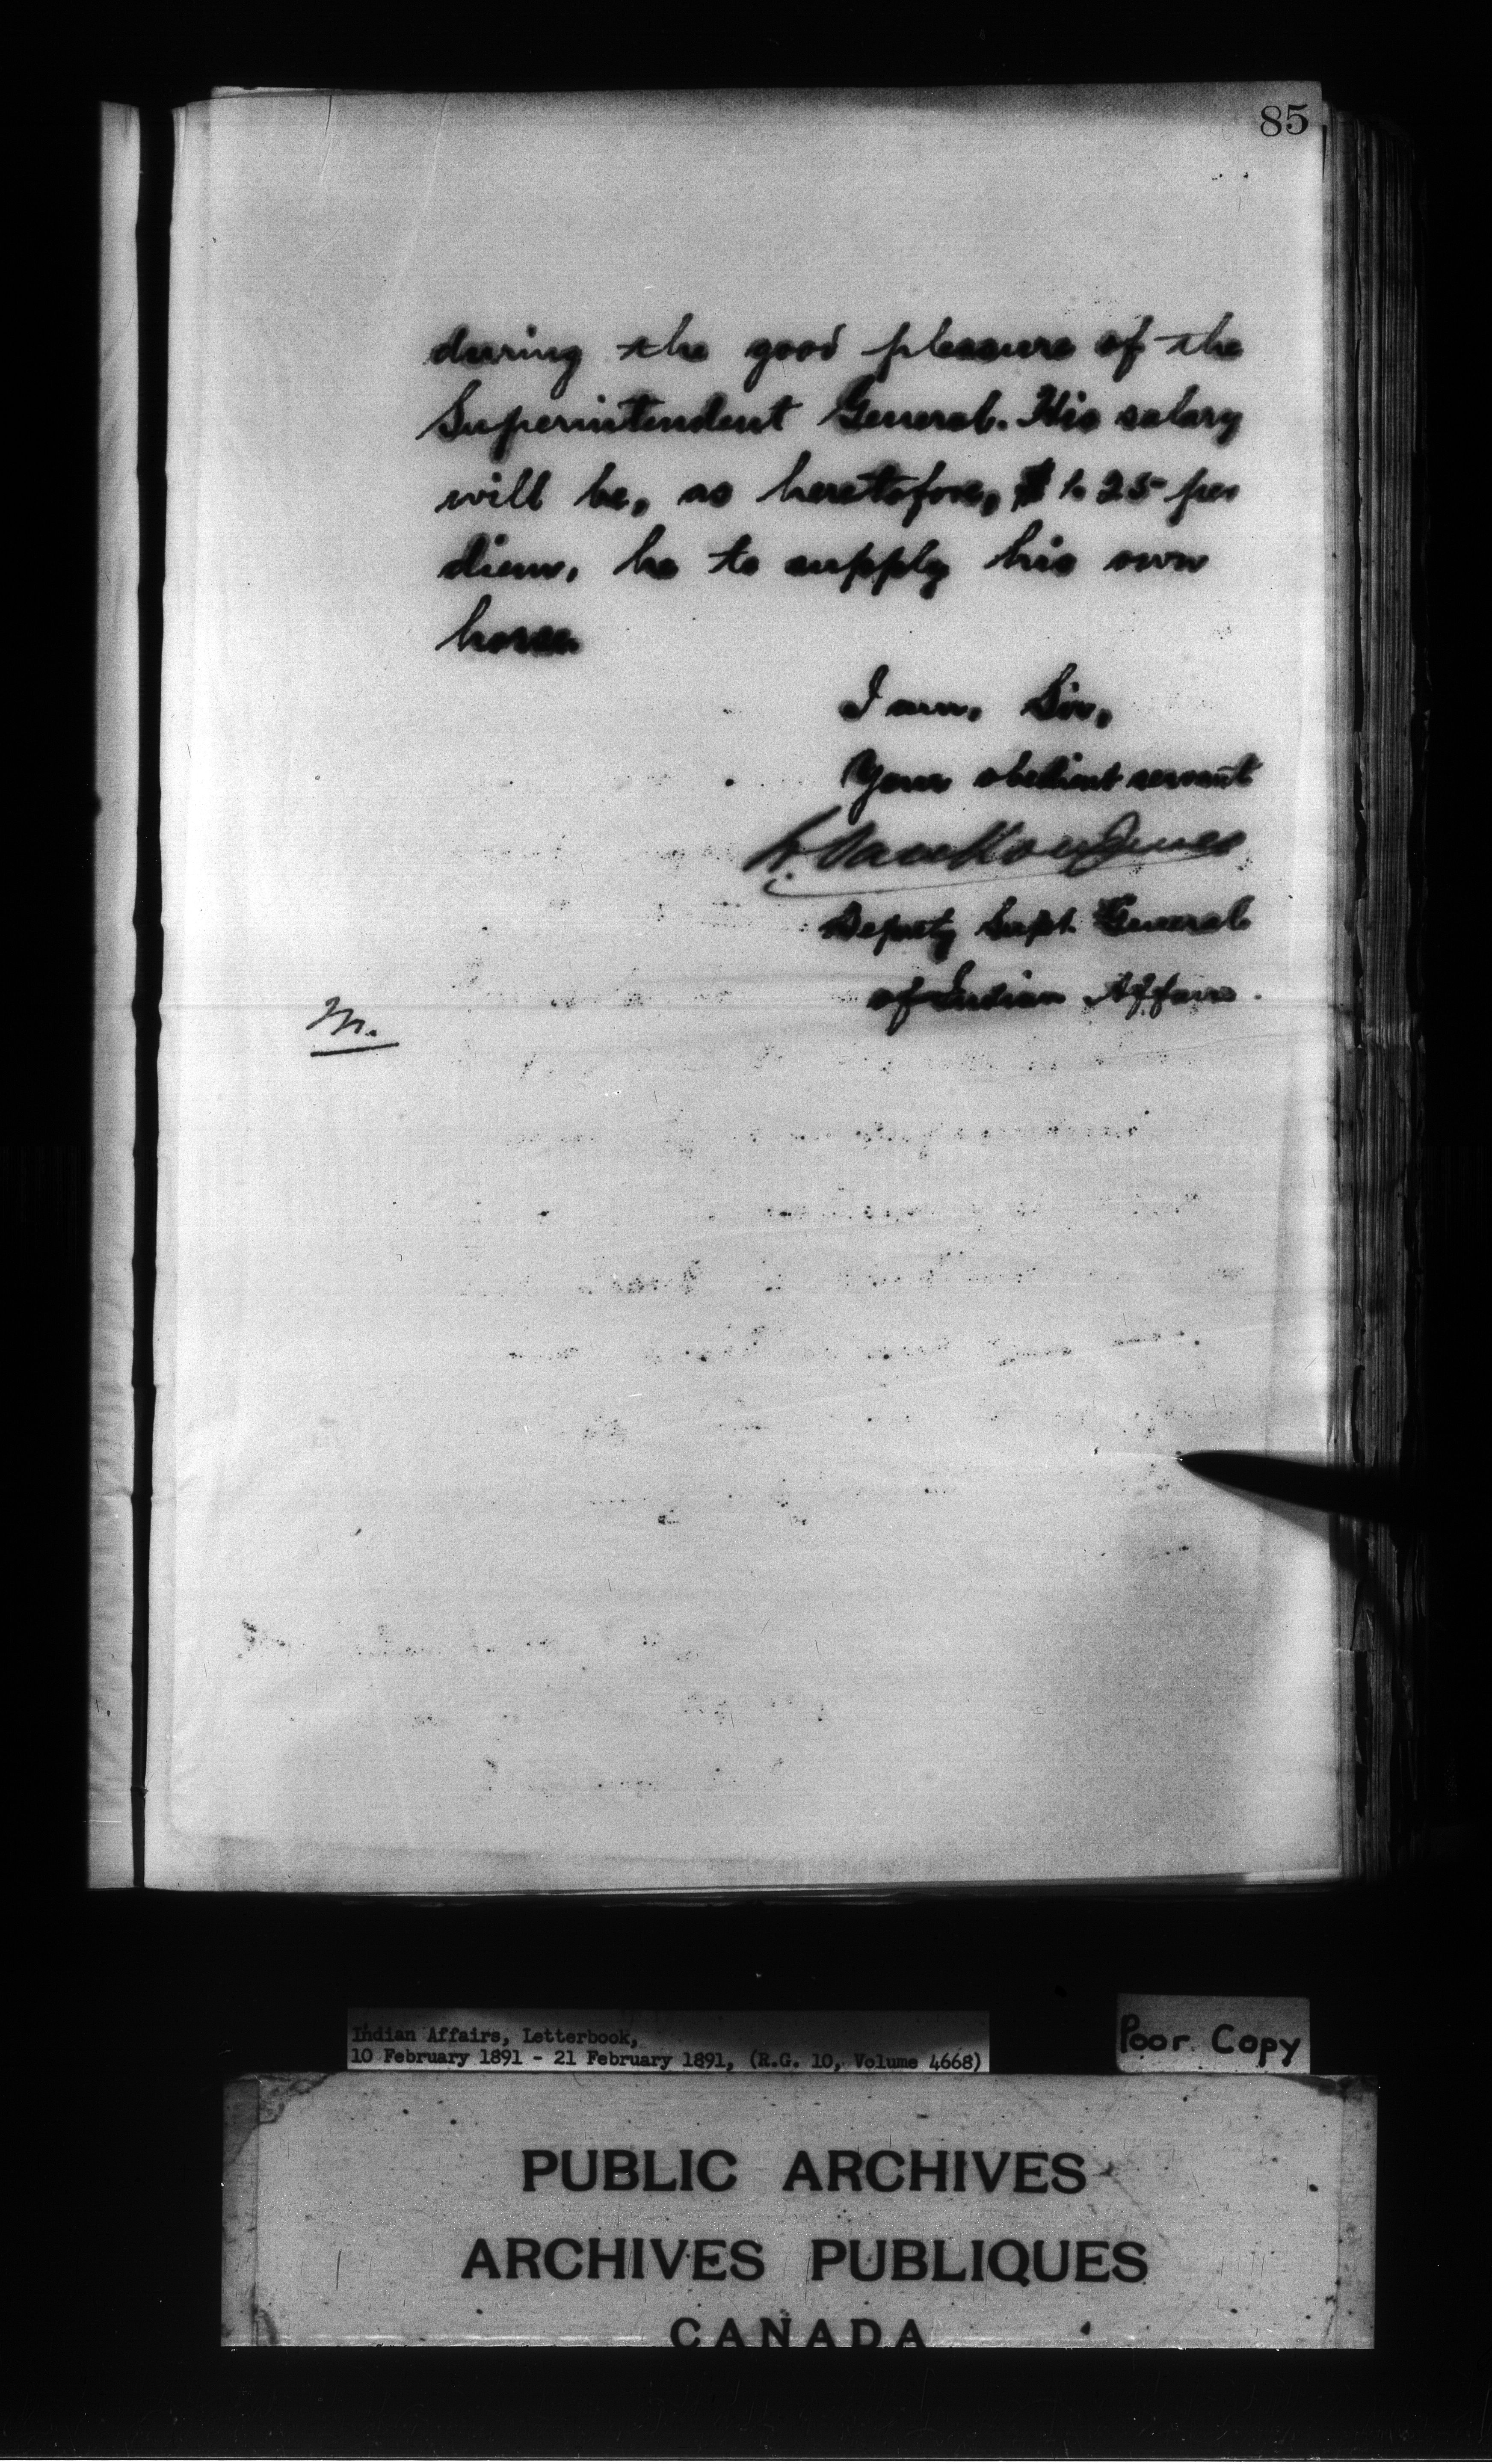 85
during the good pleasure of the
Superintendent General. His salary
will be, as heretofore, $1.25 per
diem, he to supply his own
horse.
I am, Sir,
Your obedient servant
L. Vankoughnet
Deputy Supt. General
of Indian Affairs.
M.
Indian Affairs, Letterbook,
10 February 1891 - 21 February 1891, (R.G. 10, Volume 4668)
Poor Copy
PUBLIC ARCHIVES
ARCHIVES PUBLIQUES
CANADA